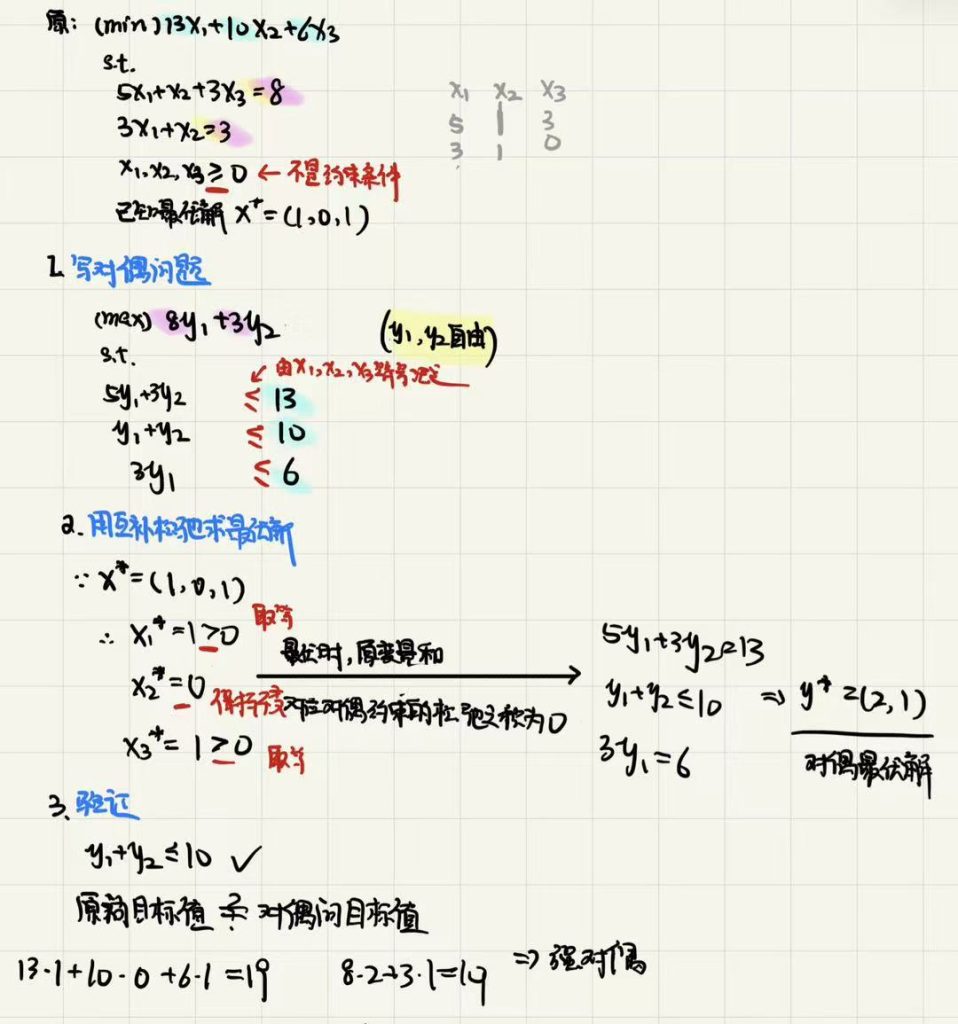 原: (min) 13x₁+10x₂+6x₃
s.t.
5x₁+x₂+3x₃=8
3x₁+x₂=3
x₁,x₂,x₃≥0 ← 不是约束条件
已知最优解 x*=(1,0,1)
x₁ x₂ x₃
5 1 3
3 1 0
1. 写对偶问题
(max) 8y₁+3y₂ (y₁,y₂自由)
s.t.
↙ 由x₁,x₂,x₃符号决定
5y₁+3y₂ ≤ 13
y₁+y₂ ≤ 10
3y₁ ≤ 6
2. 用互补松弛求最优解
∵ x*=(1,0,1)
∴ x₁*=1≥0 取等
x₂*=0 保持不变
x₃*=1≥0 取等
最优时,原变量和
对应对偶约束的松弛之积为0
5y₁+3y₂=13
y₁+y₂≤10 ⇒ y*=(2,1)
3y₁=6
对偶最优解
3. 验证
y₁+y₂≤10 ✓
原问目标值 =? 对偶问目标值
13·1+10·0+6·1=19 8·2+3·1=19 ⇒ 强对偶